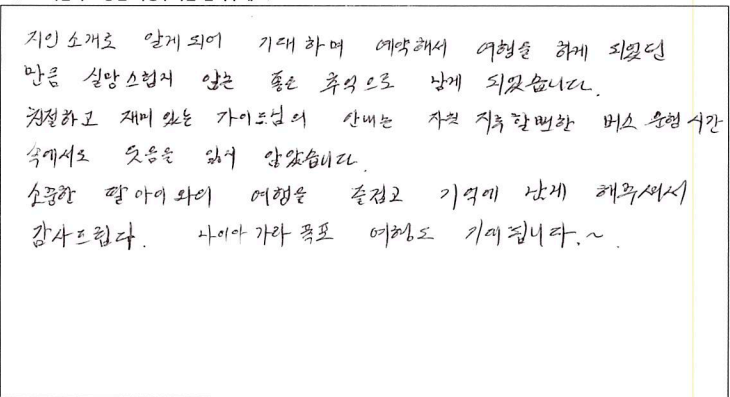 지인 소개로 알게 되어 기대 하며 예약해서 여행을 하게 되었던
만큼 실망스럽지 않는 좋은 추억으로 남게 되었습니다.
친절하고 재미 있는 가이드님의 안내는 자칫 지루할뻔한 버스 운행 시간
속에서도 웃음을 잃지 않았습니다.
소중한 딸아이와의 여행을 즐겁고 기억에 남게 해주셔서
감사드립다. 나이아가라 폭포 여행도 기대됩니다.~